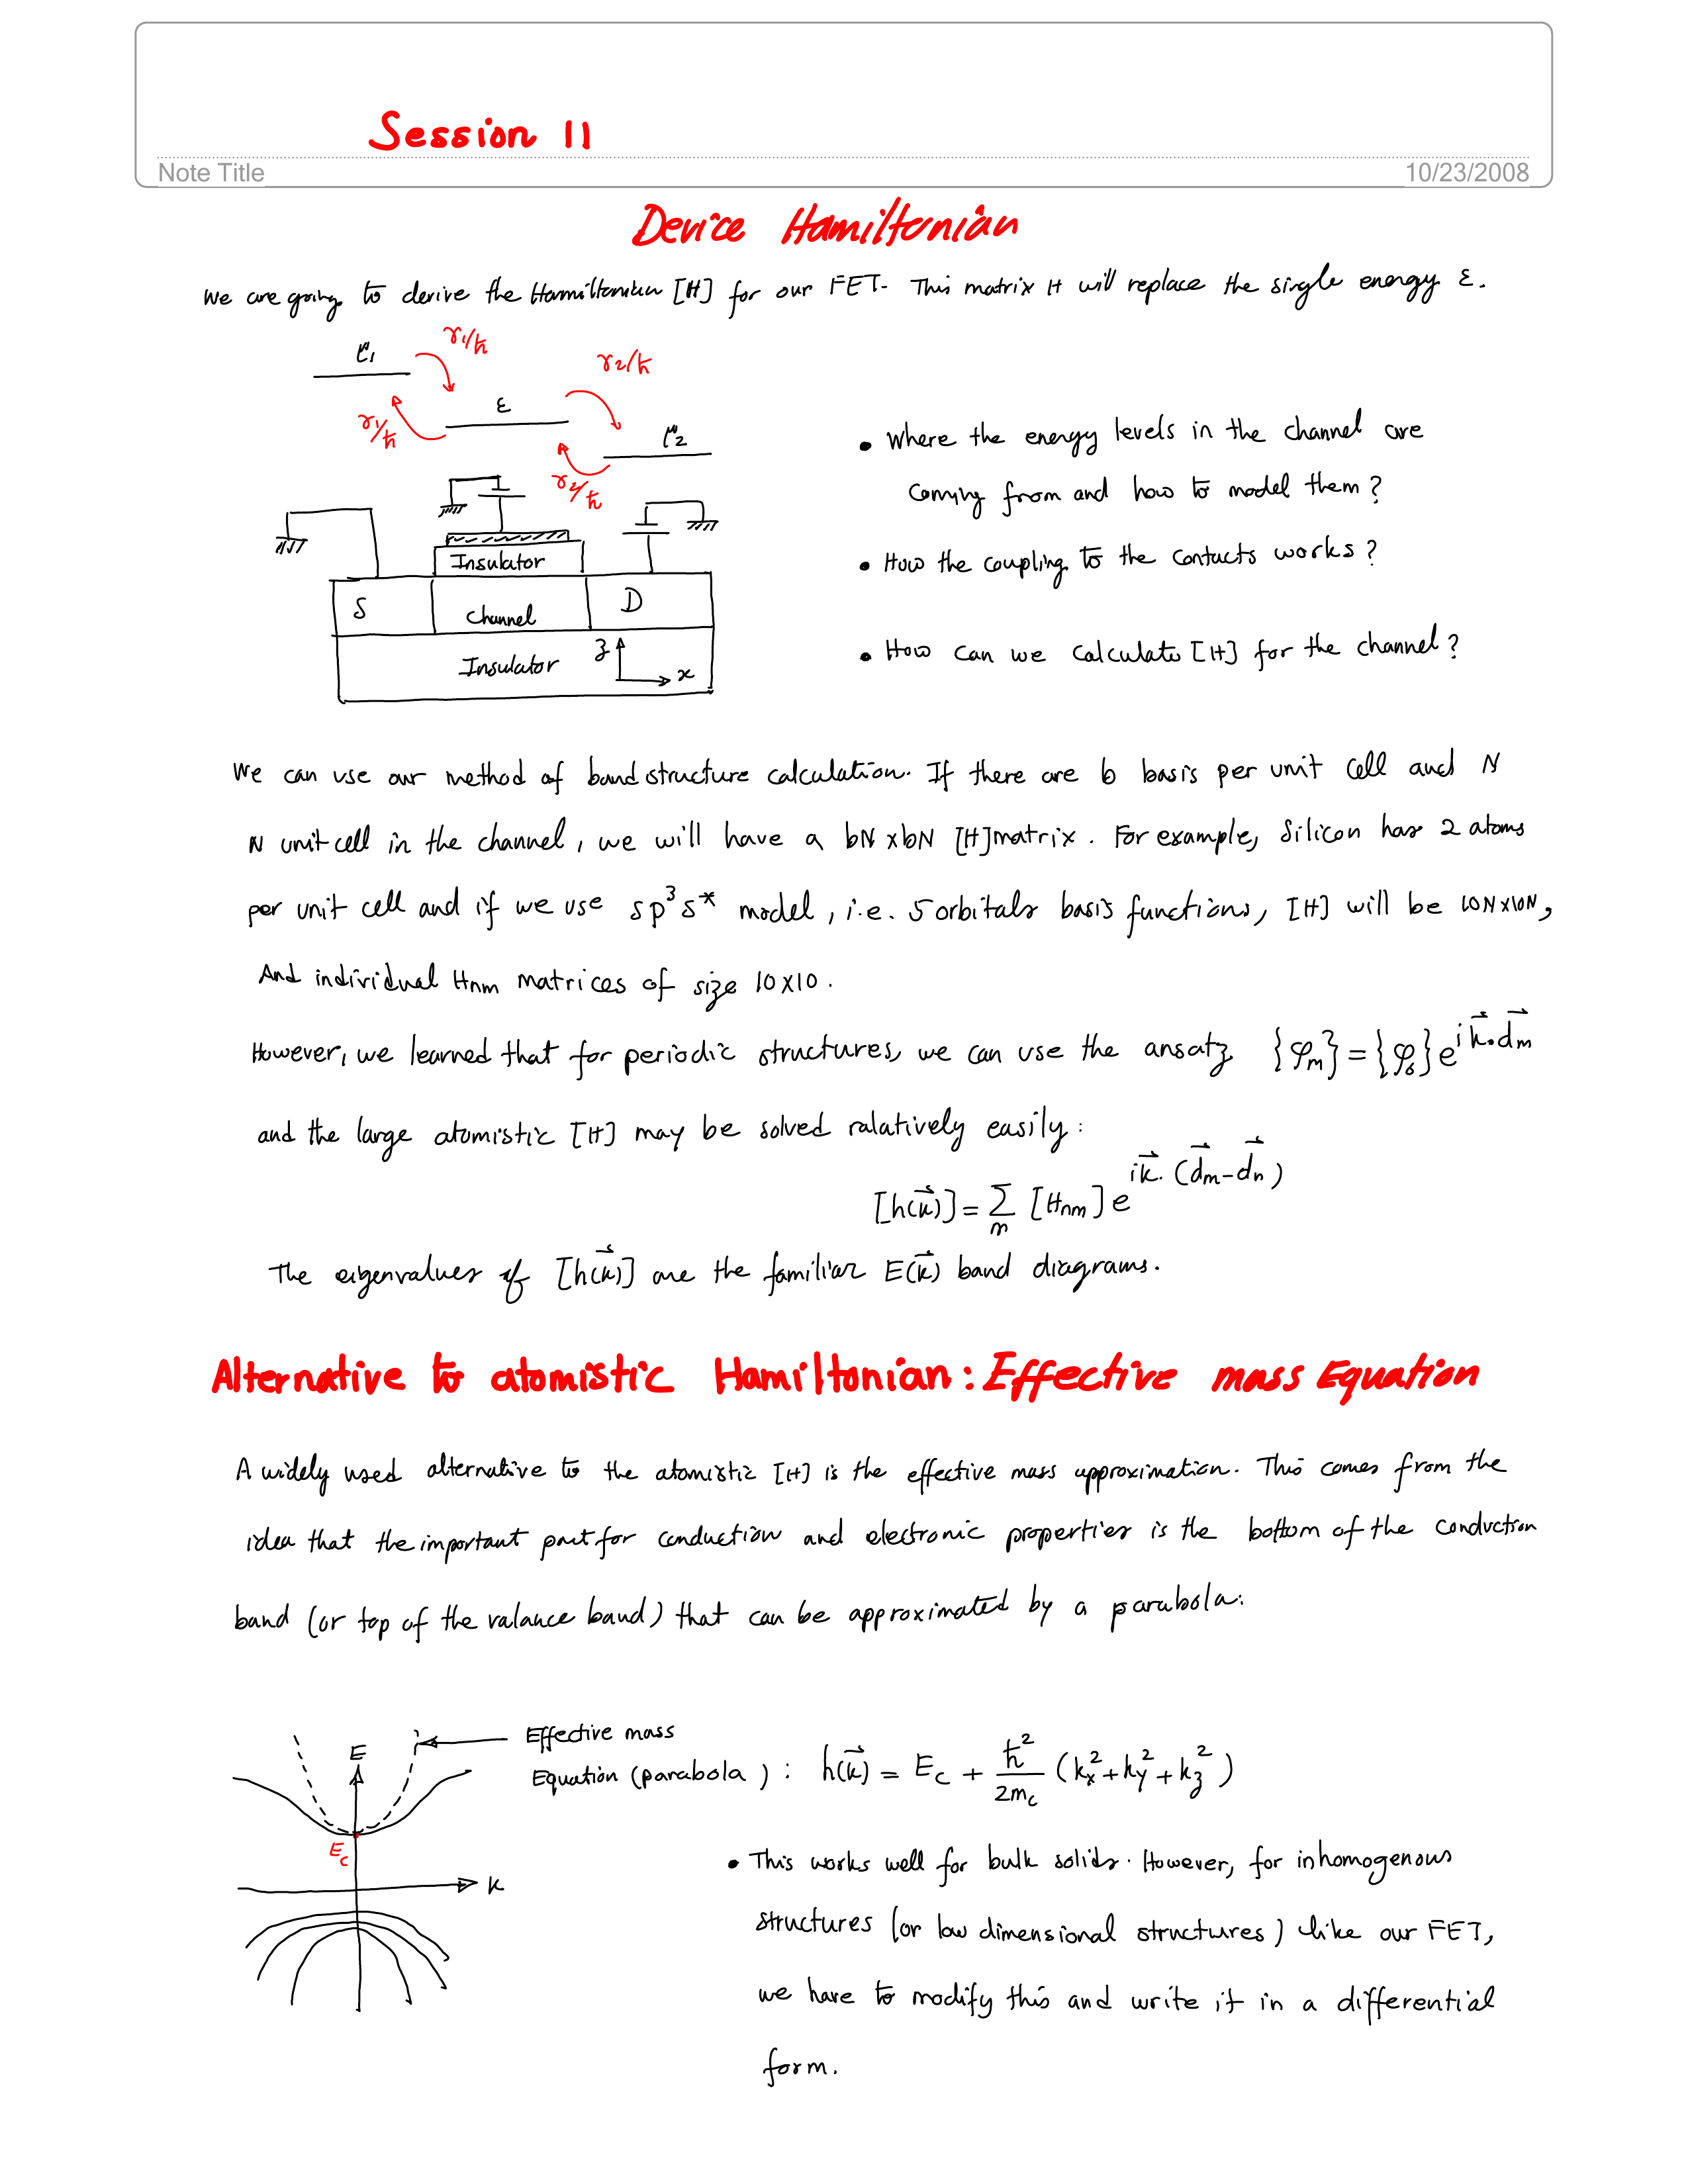 Session 11
Note Title
10/23/2008
Device Hamiltonian
We are going to derive the Hamiltonian [H] for our FET. This matrix H will replace the single energy ε.
μ1
γ1/ħ
γ2/ħ
ε
γ1/ħ
μ2
γ2/ħ
Insulator
S
Channel
D
Insulator
z
x
• Where the energy levels in the channel are
coming from and how to model them?
• How the coupling to the contacts works?
• How can we calculate [H] for the channel?
We can use our method of band structure calculation. If there are b basis per unit cell and N
N unit cell in the channel, we will have a bN x bN [H] matrix. For example, Silicon has 2 atoms
per unit cell and if we use sp³s* model, i.e. 5 orbitals basis functions, [H] will be 10N x 10N,
And individual Hnm matrices of size 10x10.
However, we learned that for periodic structures, we can use the ansatz {φm} = {φ0} e^{i k⃗·d⃗m}
and the large atomistic [H] may be solved ralatively easily:
[h(k⃗)] = Σ_m [Hnm] e^{i k⃗·(d⃗m - d⃗n)}
The eigenvalues of [h(k⃗)] are the familiar E(k⃗) band diagrams.
Alternative to atomistic Hamiltonian: Effective mass Equation
A widely used alternative to the atomistic [H] is the effective mass approximation. This comes from the
idea that the important part for conduction and electronic properties is the bottom of the conduction
band (or top of the valance band) that can be approximated by a parabola:
E
Effective mass
Equation (parabola): h(k⃗) = Ec + ħ²/2mc (kx² + ky² + kz²)
Ec
k
• This works well for bulk solids. However, for inhomogenous
structures (or low dimensional structures) like our FET,
we have to modify this and write it in a differential
form.